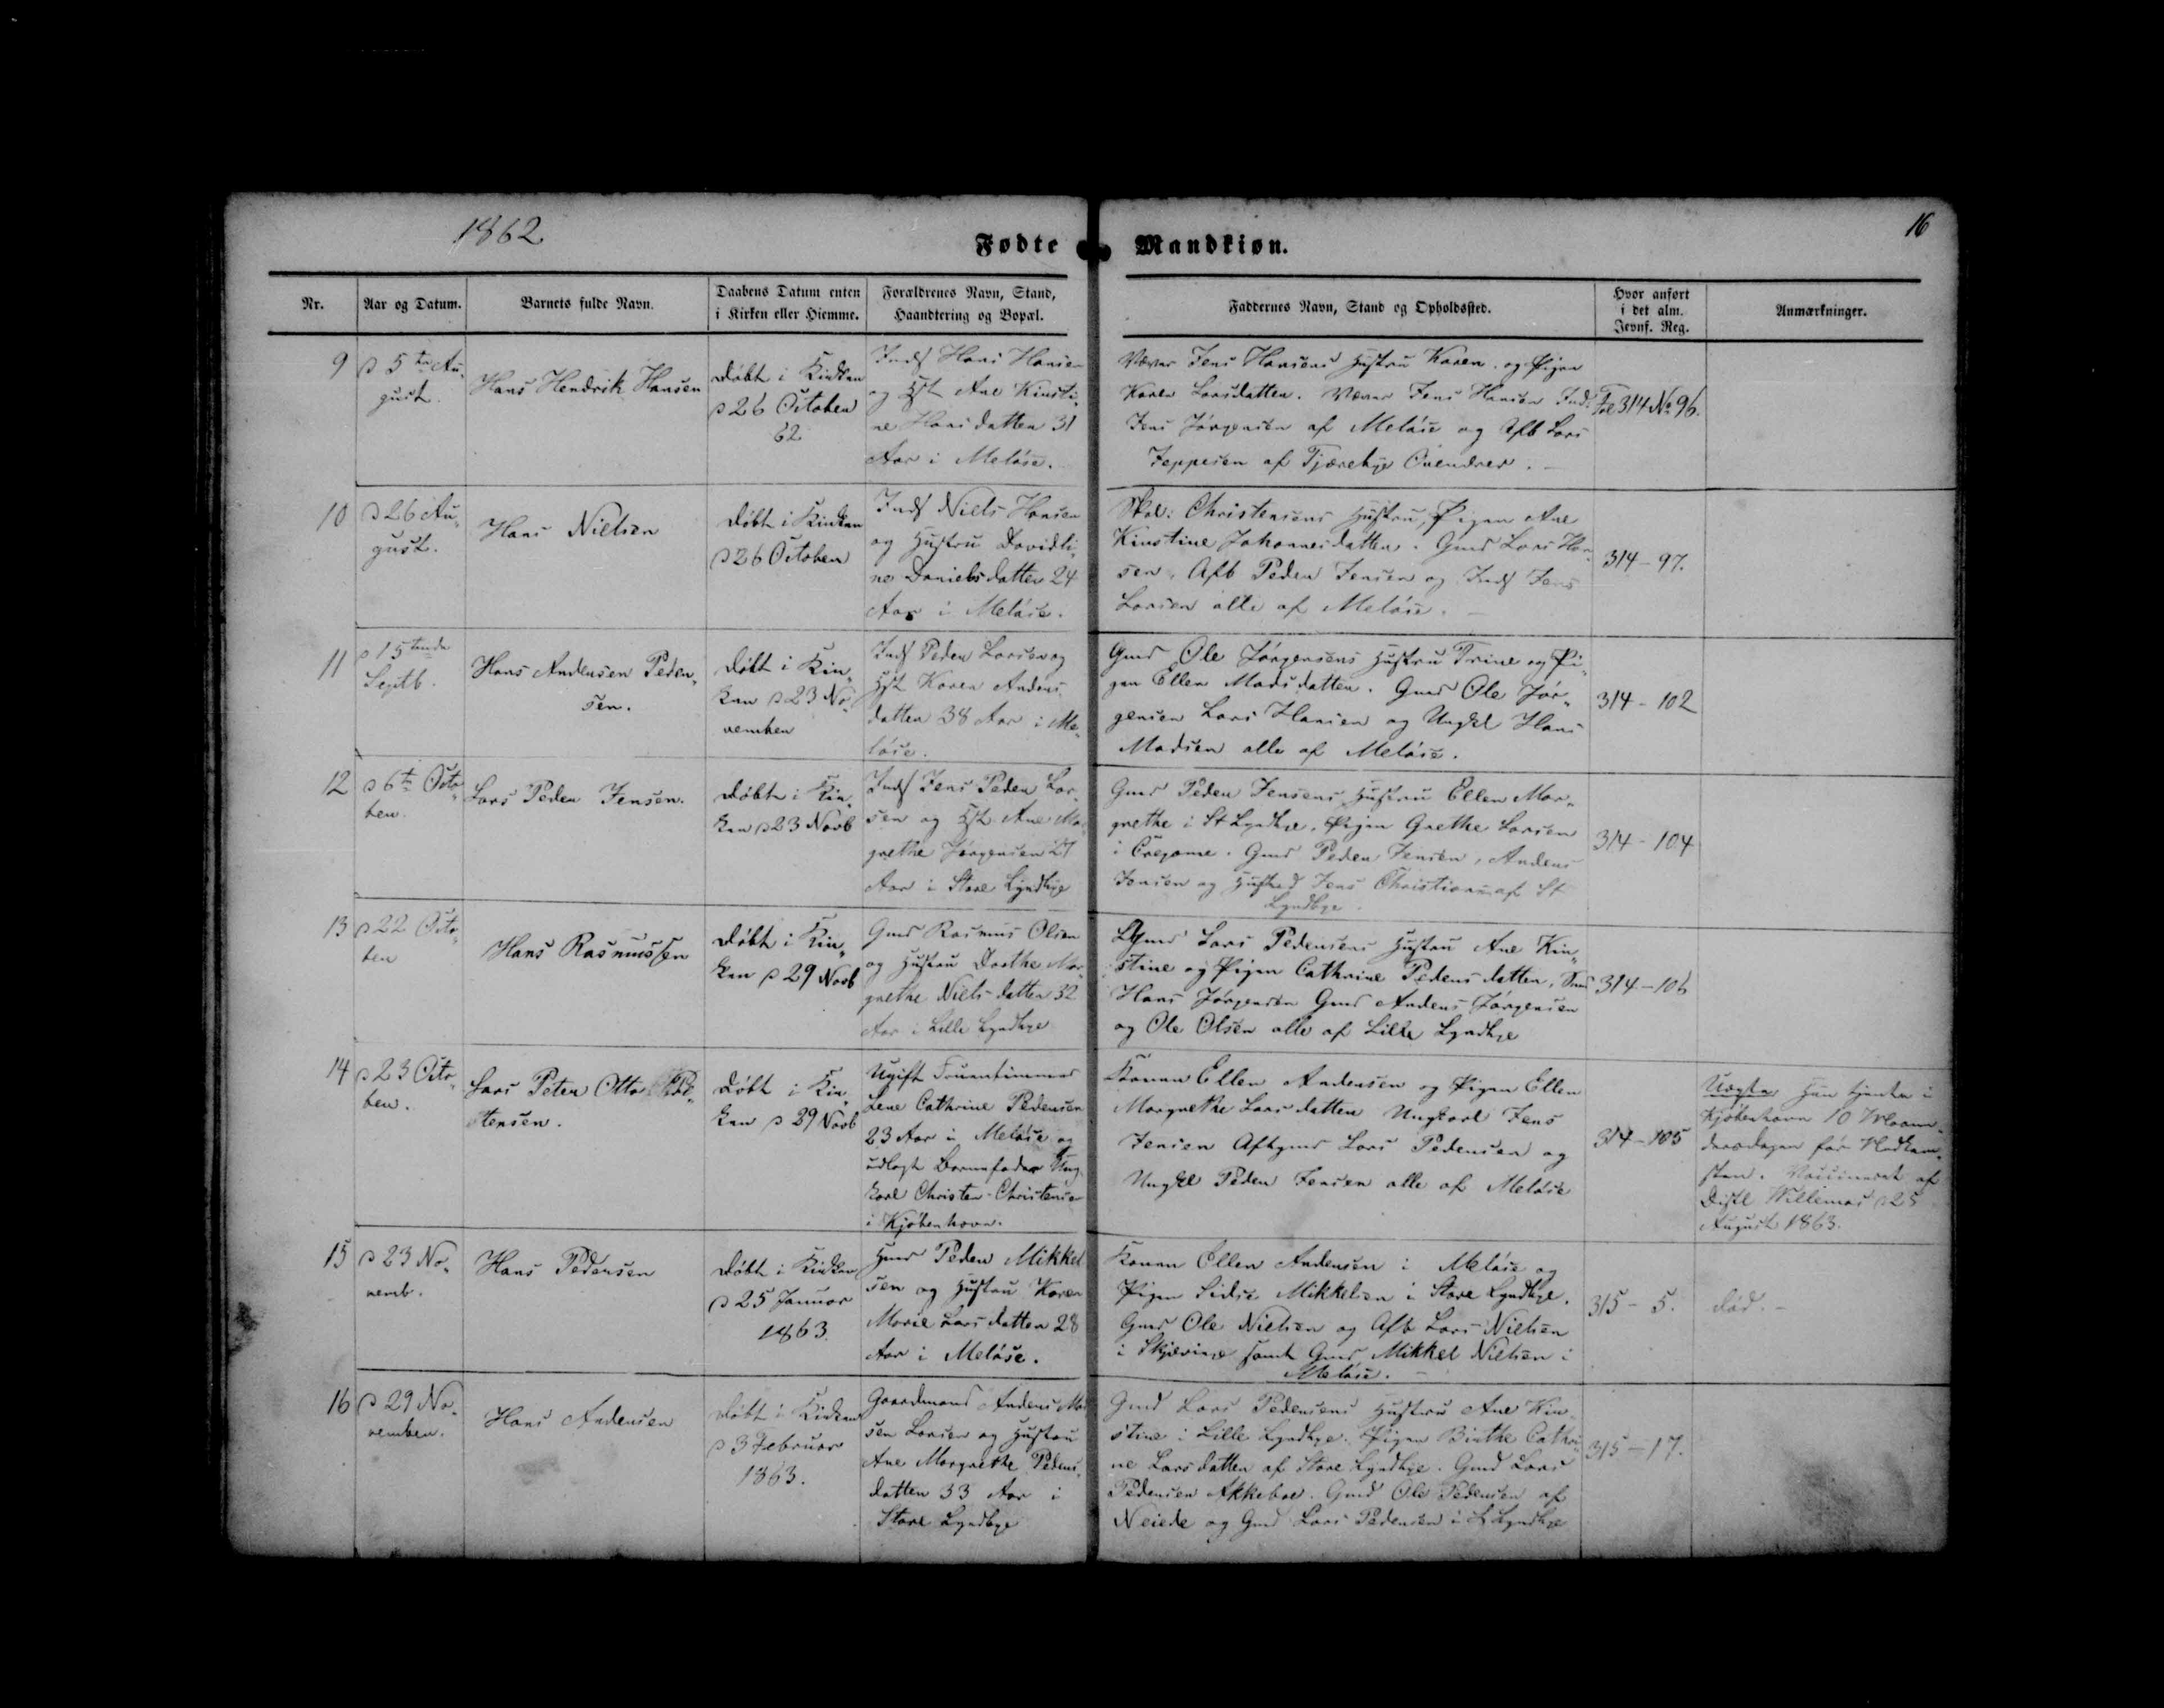 1862
Fødte
Mandkiøn.
16
Nr.
Aar og Datum.
Barnets fulde Navn.
Daabens Datum enten
i Kirken eller Hiemme.
Forældrenes Navn, Stand,
Haandtering og Bopæl.
Faddernes Navn, Stand og Opholdssted.
Hvor anført
i det alm.
Jevnf. Reg.
Anmærkninger.
9
d 5te Au-
gust.
Hans Hendrik Hansen
Døbt i Kirken
d 26 October
62
Inds Hans Hansen
og Hst Ane Kirsti-
ne Hansdatter 31
Aar i Meløse.
Væver Jens Hansens Hustru Karen og Pigen
Karen Larsdatter. Væver Jens Hansen Inds
Jens Jørgensen af Meløse og Aftb Lars
Jeppesen af Tjæreby
Fol 314 No 96.
10
d 26 Au-
gust.
Hans Nielsen
Døbt i Kirken
d 26 October
Inds Niels Hansen
og Hustru Davidli-
ne Danielsdatter 24
Aar i Meløse.
Christensens Hustru, Pigen Ane
Kirstine Johannesdatter. Gmd Lars Han-
sen, Aftb Peder Jensen og Inds Jens
Larsen alle af Meløse.
314 - 97.
11
d 15tende
Septb.
Hans Andersen Peder-
sen.
Døbt i Kir-
ken d 23 No-
vember
Inds Peder Larsen og
Hst Karen Anders-
datter 38 Aar i Me-
løse.
Gmd Ole Jørgensens Hustru Trine og Pi-
gen Ellen Madsdatter. Gmd Ole Jør-
gensen Lars Hansen og Ungkl Hans
Madsen alle af Meløse.
314 - 102
12
d 6te Octo-
ber
Lars Peder Jensen.
Døbt i Kir-
ken d 23 Novb
Inds Jens Peder Lar-
sen og Hst Ane Mar-
grethe Jørgensen 27
Aar i Store Lyndbye
Gmd Peder Jensens Hustru Ellen Mar-
grethe i St Lyndbye, Pigen Grethe Larsen
i Gmd Peder Jensen, Anders
Jensen og Jens af St
Lyndbye.
314 - 104
13
d 22 Octo-
ber
Hans Rasmussen
Døbt i Kir-
ken d 29 Novb
Gmd Rasmus Olsen
og Hustru Dorthe Mar-
grethe Nielsdatter 32
Aar i Lille Lyndbye
Gmd Lars Pedersens Hustru Ane Kir-
stine og Pigen Cathrine Pedersdatter,
Hans Jørgensen Gmd Anders Jørgensen
og Ole Olsen alle af Lille Lyndbye
314 - 106
14
d 23 Octo-
ber.
Lars Peter Otto
stensen.
Døbt i Kir-
ken d 29 Novb
Ugift Fruentimmer
Lene Cathrine Pedersen
23 Aar i Meløse og
udlagt Barnefader Ung-
karl Christen Christensen
i Kjøbenhavn.
Konen Ellen Andersen og Pigen Ellen
Margrethe Larsdatter Ungkarl Jens
Jensen Aftgmd Lars Pedersen og
Ungkl Peder Jensen alle af Meløse
314 - 105
Uægte. Hun tjente i
Kjøbenhavn 10 Maane-
dersdagen før Nedkom-
sten. Vaccineret af
Distl Willemos d 25
August 1863.
15
d 23 No-
vemb.
Hans Pedersen
Døbt i Kirken
d 25 Januar
1863.
Hmd Peder Mikkel
sen og Hustru Karen
Marie Larsdatter 28
Aar i Meløse.
Konen Ellen Andersen i Meløse og
Pigen Sidse Mikkelsen i Store Lyndbye.
Gmd Ole Nielsen og Aftb Lars Nielsen
i Skjævinge samt Gmd Mikkel Nielsen i
Meløse.
315 - 5.
død.
16
d 29 No-
vember.
Hans Andersen
Døbt i Kirken
d 3 Februar
1863.
Gaardmand Anders
sen Larsen og Hustru
Ane Margrethe Peders-
datter 33 Aar i
Store Lyndbye
Gmd Lars Pedersens Hustru Ane Kir-
stine i Lille Lyndbye. Pigen Birthe Cathri-
ne Larsdatter af Store Lyndbye. Gmd Lars
Pedersen Gmd Ole Pedersen af
Neiede og Gmd Lars Pedersen i L Lyndbye
315 - 17.